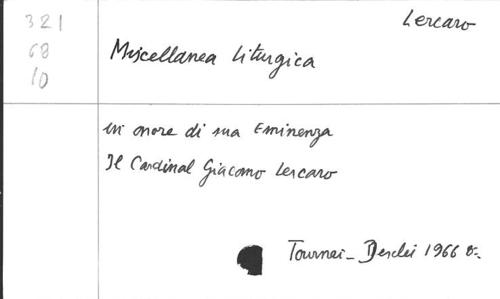 321
68
10
Lercaro
Miscellanea Liturgica
in onore di sua Eminenza
Il Cardinal Giacomo Lercaro
Tournai - Desclei 1966 8-